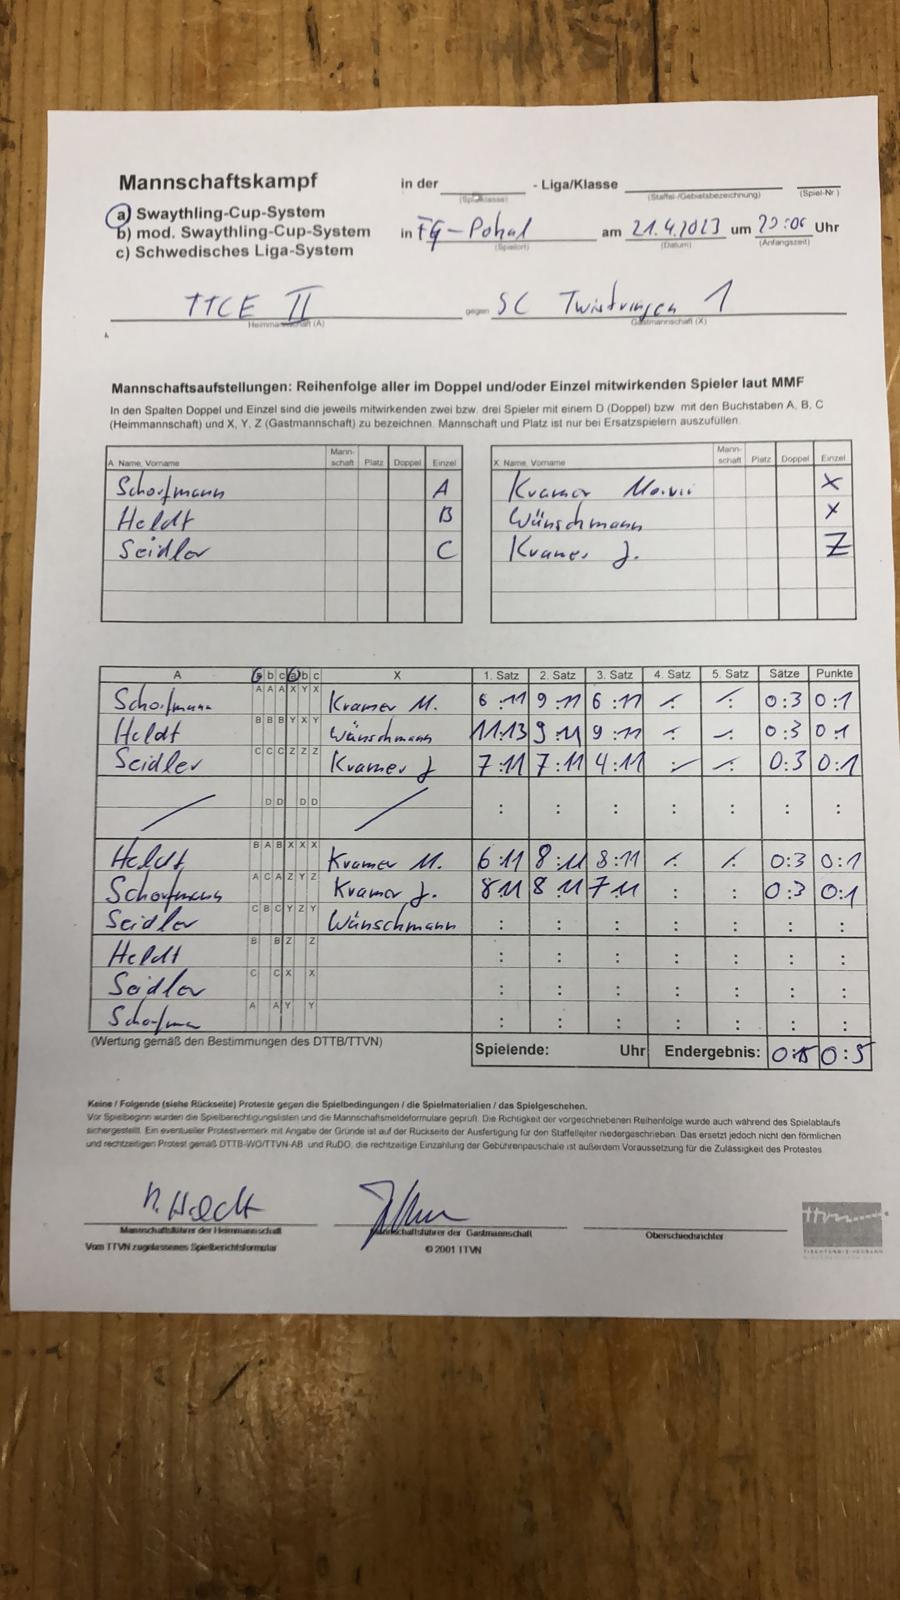 Mannschaftskampf in der - Liga/Klasse
(Staffel-/Gebietsbezeichnung) (Spiel-Nr.)
a) Swaythling-Cup-System
b) mod. Swaythling-Cup-System in FG-Pokal am 21.4.2023 um Uhr
(Spielort) (Datum) (Anfangszeit)
c) Schwedisches Liga-System
TTCE II gegen SC Twistringen 1
Heimmannschaft (A) Gastmannschaft (X)
Mannschaftsaufstellungen: Reihenfolge aller im Doppel und/oder Einzel mitwirkenden Spieler laut MMF
In den Spalten Doppel und Einzel sind die jeweils mitwirkenden zwei bzw. drei Spieler mit einem D (Doppel) bzw mit den Buchstaben A, B, C
(Heimmannschaft) und X, Y, Z (Gastmannschaft) zu bezeichnen. Mannschaft und Platz ist nur bei Ersatzspielern auszufüllen.
A Name, Vorname Mann-schaft Platz Doppel Einzel X Name, Vorname Mann-schaft Platz Doppel Einzel
A Kramer X
Heldt B Wünschmann Y
Seidler C Kramer J. Z
A a b c a b c X 1. Satz 2. Satz 3. Satz 4. Satz 5. Satz Sätze Punkte
A A A X Y X Kramer M. 6:11 9:11 6:11 0:3 0:1
Heldt B B B Y X Y Wünschmann 11:13 9:11 9:11 0:3 0:1
Seidler C C C Z Z Z Kramer J 7:11 7:11 4:11 0:3 0:1
D D D D : : : : : : :
Heldt B A B X X X Kramer M. 6:11 8:11 8:11 0:3 0:1
A C A Z Y Z Kramer J. 8 11 8 11 7 11 : : 0:3 0:1
Seidler C B C Y Z Y Wünschmann : : : : : : :
Heldt B B Z Z : : : : : : :
Seidler C C X X : : : : : : :
A A Y Y : : : : : : :
(Wertung gemäß den Bestimmungen des DTTB/TTVN) Spielende: Uhr Endergebnis: 0:15 0:5
Keine / Folgende (siehe Rückseite) Proteste gegen die Spielbedingungen / die Spielmaterialien / das Spielgeschehen.
Vor Spielbeginn wurden die Spielberechtigungslisten und die Mannschaftsmeldeformulare geprüft. Die Richtigkeit der vorgeschriebenen Reihenfolge wurde auch während des Spielablaufs
sichergestellt. Ein eventueller Protestvermerk mit Angabe der Gründe ist auf der Rückseite der Ausfertigung für den Staffelleiter niedergeschrieben. Das ersetzt jedoch nicht den förmlichen
und rechtzeitigen Protest gemäß DTTB-WO/TTVN-AB und RuDO, die rechtzeitige Einzahlung der Gebührenpauschale ist außerdem Voraussetzung für die Zulässigkeit des Protestes
Mannschaftsführer der Heimmannschaft Mannschaftsführer der Gastmannschaft Oberschiedsrichter
Vom TTVN zugelassenes Spielberichtsformular © 2001 TTVN
ttvn